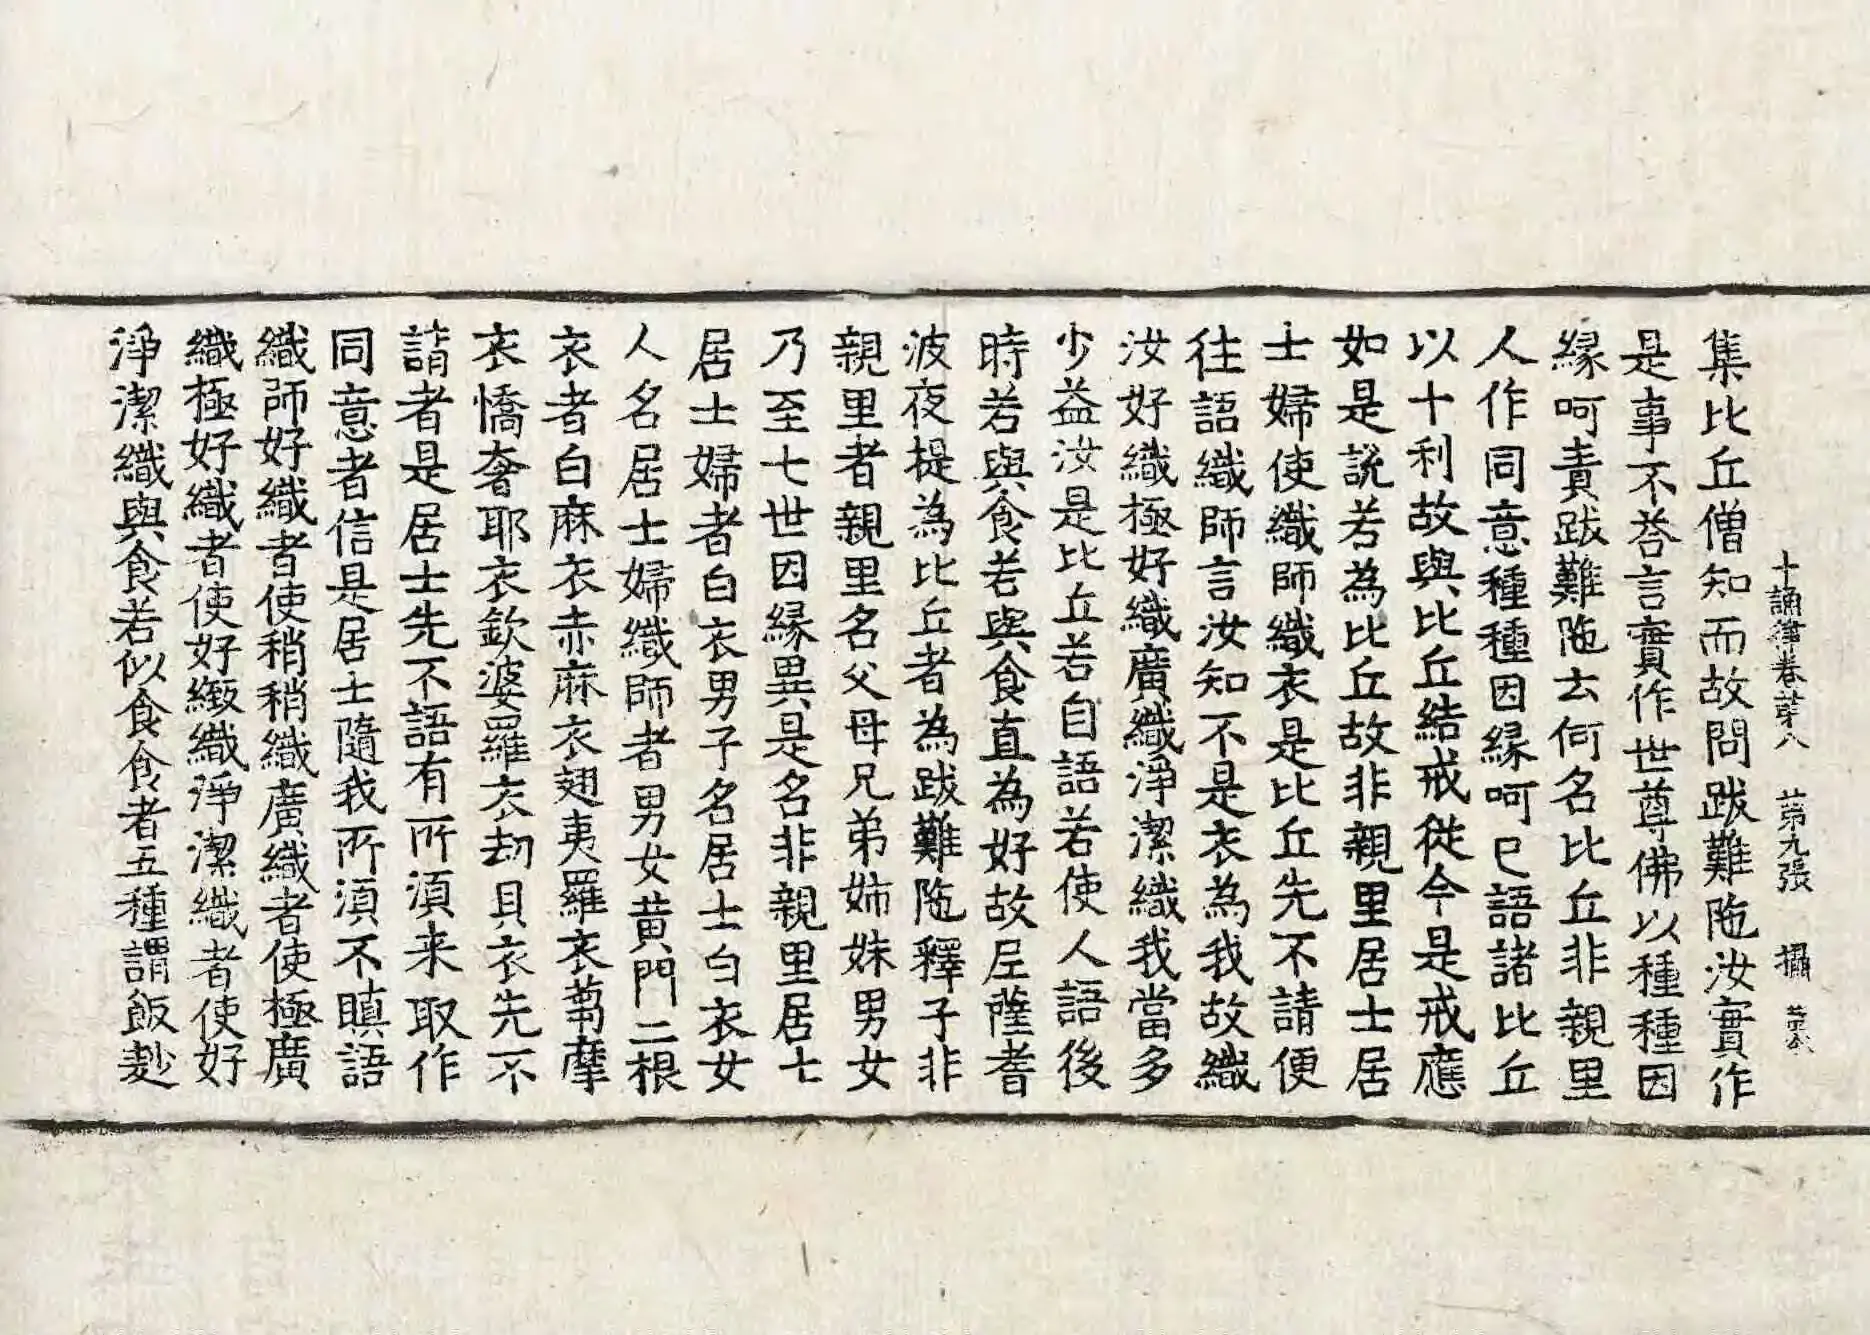 十誦律卷第八　第九張　攝
集比丘僧知而故問跋難陁汝實作
是事不荅言實作世尊佛以種種因
緣呵責跋難陁云何名比丘非親里
人作同意種種因緣呵已語諸比丘
以十利故與比丘結戒從今是戒應
如是說若為比丘故非親里居士居
士婦使織師織衣是比丘先不請便
往語織師言汝知不是衣為我故織
汝好織極好織廣織淨潔織我當多
少益汝是比丘若自語若使人語後
時若與食若與食直為好故尼薩耆
波夜提為比丘者為跋難陁釋子非
親里者親里名父母兄弟姊妹男女
乃至七世因緣異是名非親里居士
居士婦者白衣男子名居士白衣女
人名居士婦織師者男女黃門二根
衣者白麻衣赤麻衣翅夷羅衣蒭摩
衣憍奢耶衣欽婆羅衣劫貝衣先不
請者是居士先不語有所湏来取作
同意者信是居士隨我所湏不瞋語
織師好織者使稍稍織廣織者使極廣
織極好織者使好緻織淨潔織者使好
淨潔織與食若似食食者五種謂飯麨